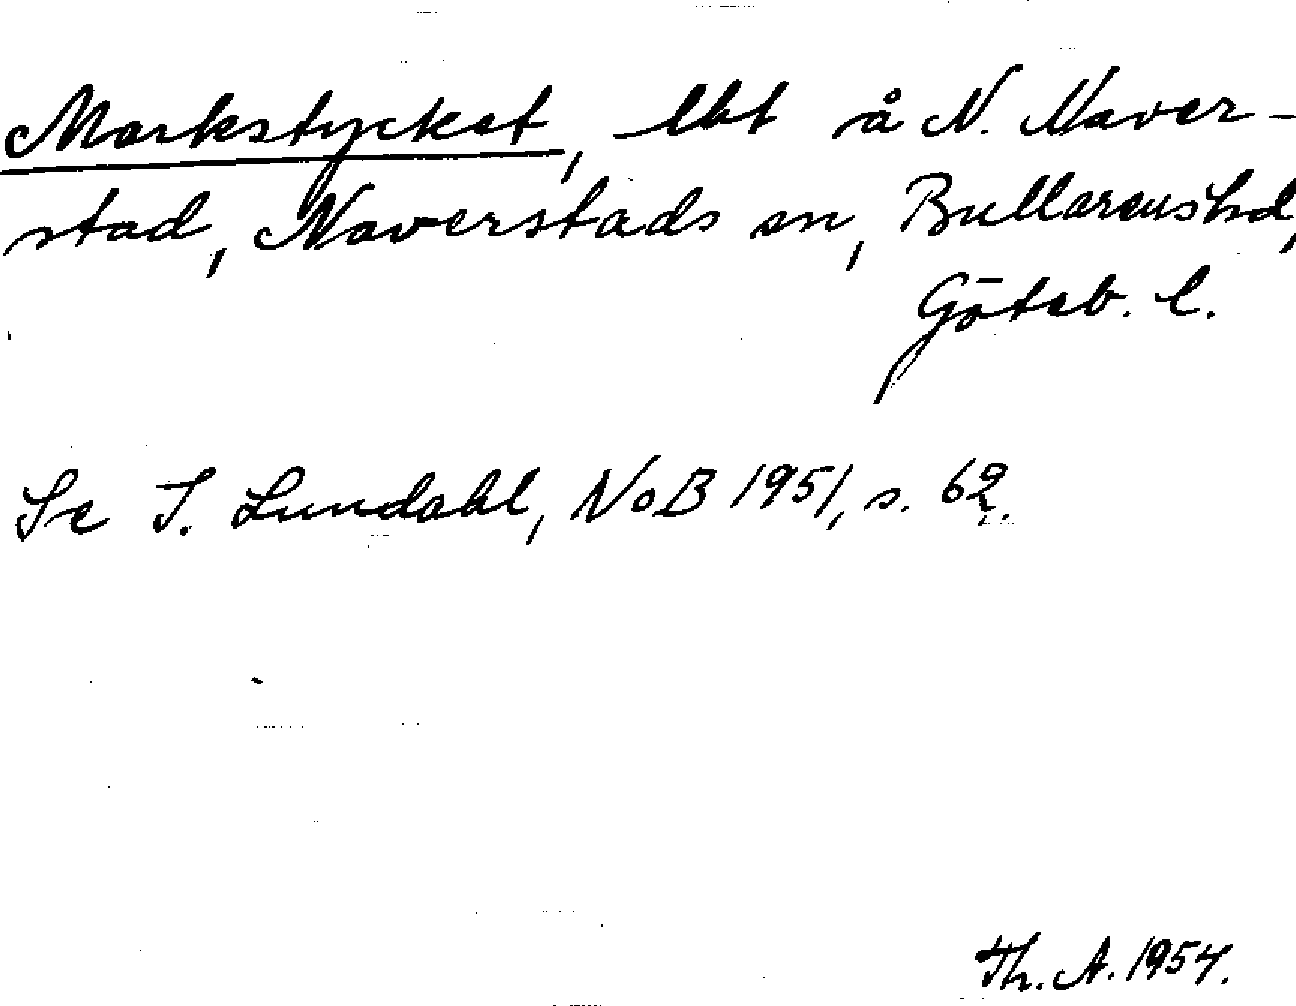 Markstycket, lht å N. Naver-
stad, Naverstads sn, Bullarens hd,
Göteb. l.
Se I. Lundahl, NoB 1951, s. 62.
Th. A. 1954.